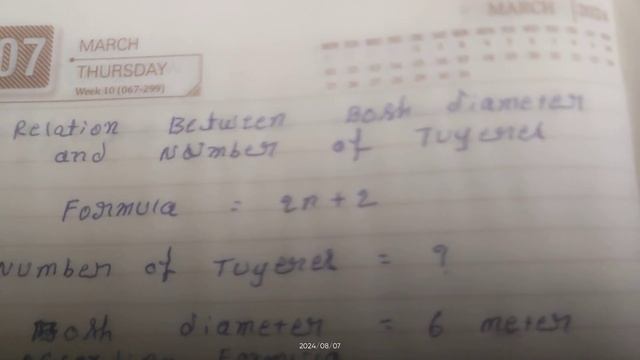 07
MARCH
THURSDAY
Week 10 (067-299)
MARCH
Relation Between Bosh diameter
and Number of Tuyerel
Formula = 2n + 2
Number of Tuyerel = ?
Bosh diameter = 6 meter
Formula
2024/08/07